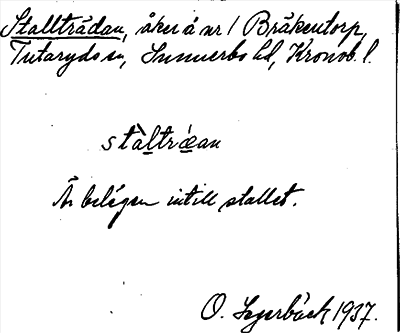 Stallträdan, åker å nr 1 Bråkentorp,
Tutaryds sn, Sunnerbo hd, Kronob. l.
stàltrǽan
Är belägen intill stallet.
O. Segerbäck 1937.